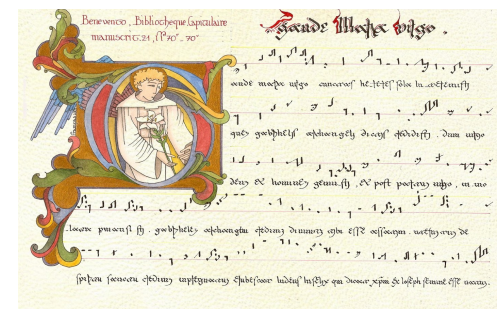 Benevento, Bibliotheque Capiculaire
manuscrit 21, f°70°-70°
Gaude Maria Virgo.
aude maria virgo cunctas hereses sola interemisti
que gabrihelis archangeli dictis credidisti. dum virgo
deum et hominem genuisti, et post partum virgo, in vio
lata permansisti. gabrihelem archangelum credimus divinitus tibi esse
spiritu sancto credimus erubescat iudeus infelix qui ex ioseph semine esse natum.